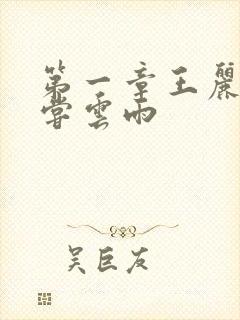 第一章王麗
嘗雲雨
吴巨友